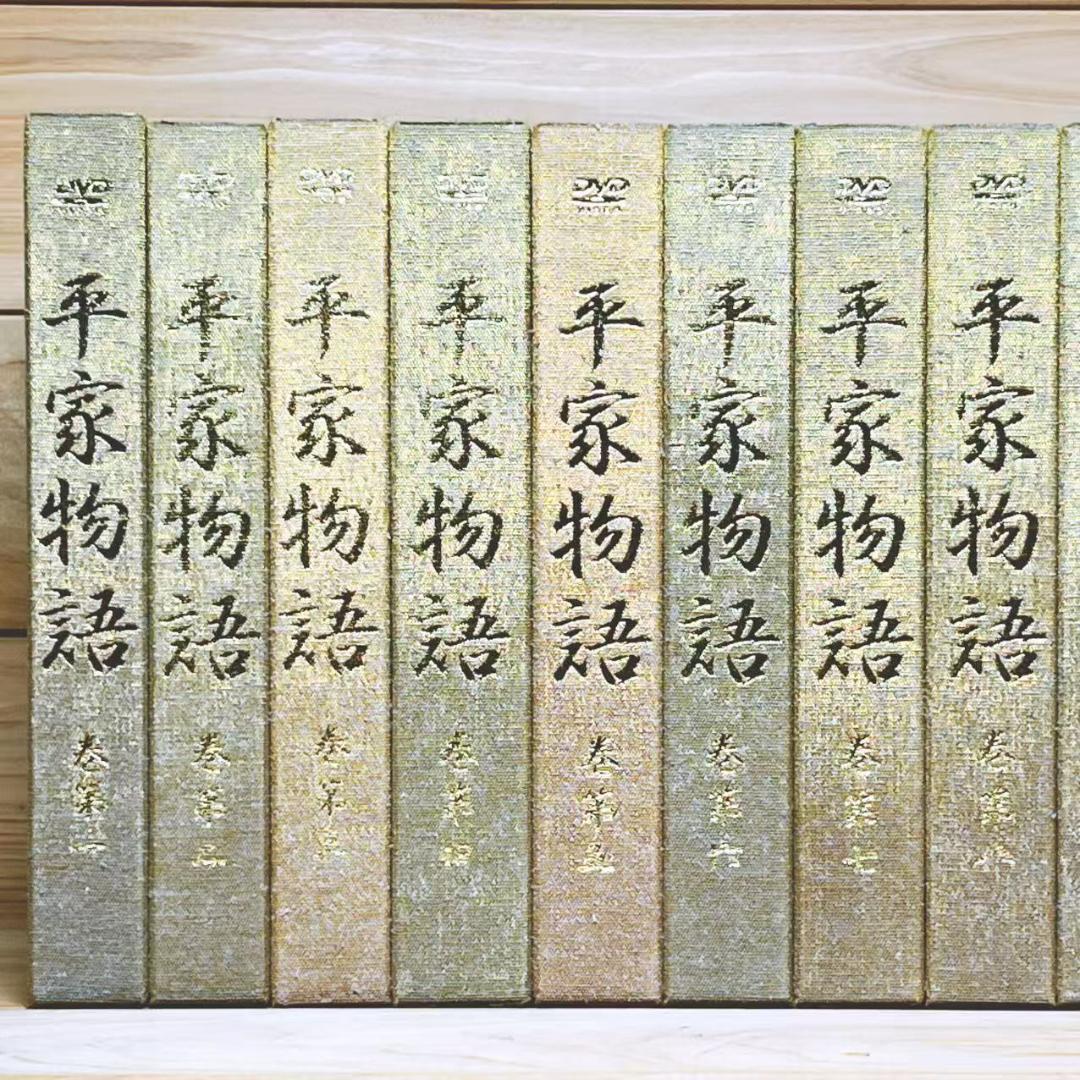 DVD
平家物語
巻第一
DVD
平家物語
巻第二
DVD
平家物語
巻第三
DVD
平家物語
巻第四
DVD
平家物語
巻第五
DVD
平家物語
巻第六
DVD
平家物語
巻第七
DVD
平家物語
巻第八